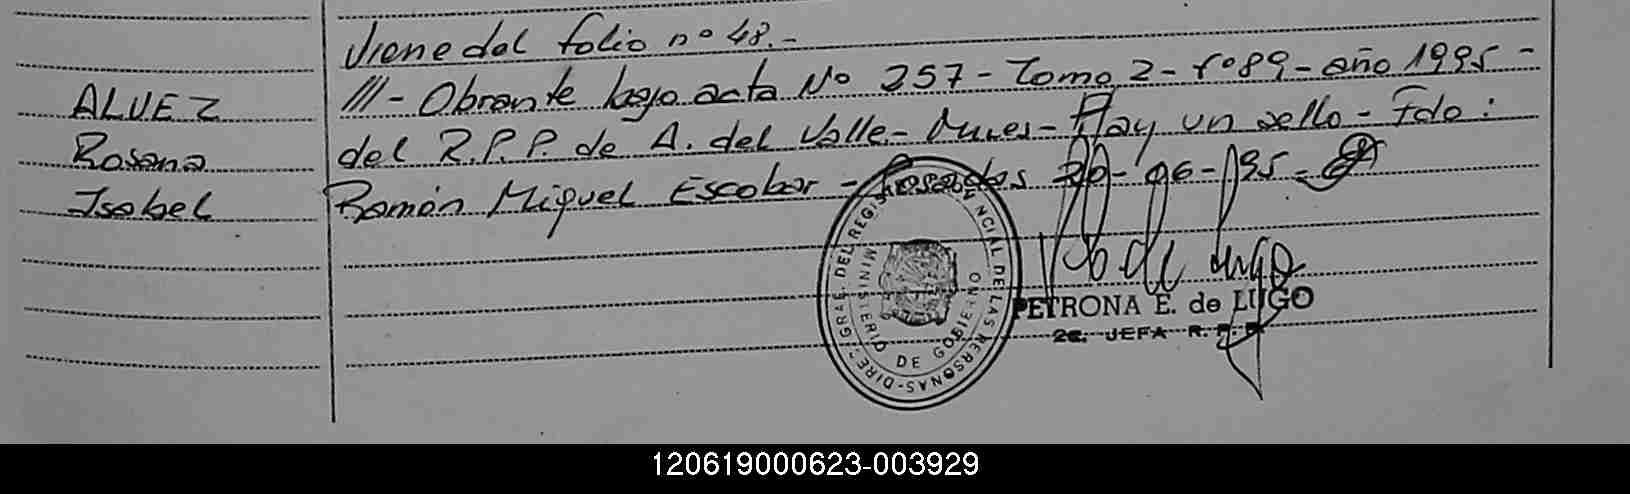 Viene del folio nº 48.-
ALVEZ
Rosana
Isabel
III- Obrante bajo acta Nº 257- Tomo 2- fº 89- año 1995-
del R.P.P. de A. del Valle.- Mnes- Hay un sello- Fdo:
Ramón Miguel Escobar - Posadas 20-06-95.-
DIRE. GRAL. DEL REGIS. PROVINCIAL DE LAS PERSONAS-
MINISTERIO DE GOBIERNO
PETRONA E. de LUGO
2a. JEFA R. P. P.
120619000623-003929